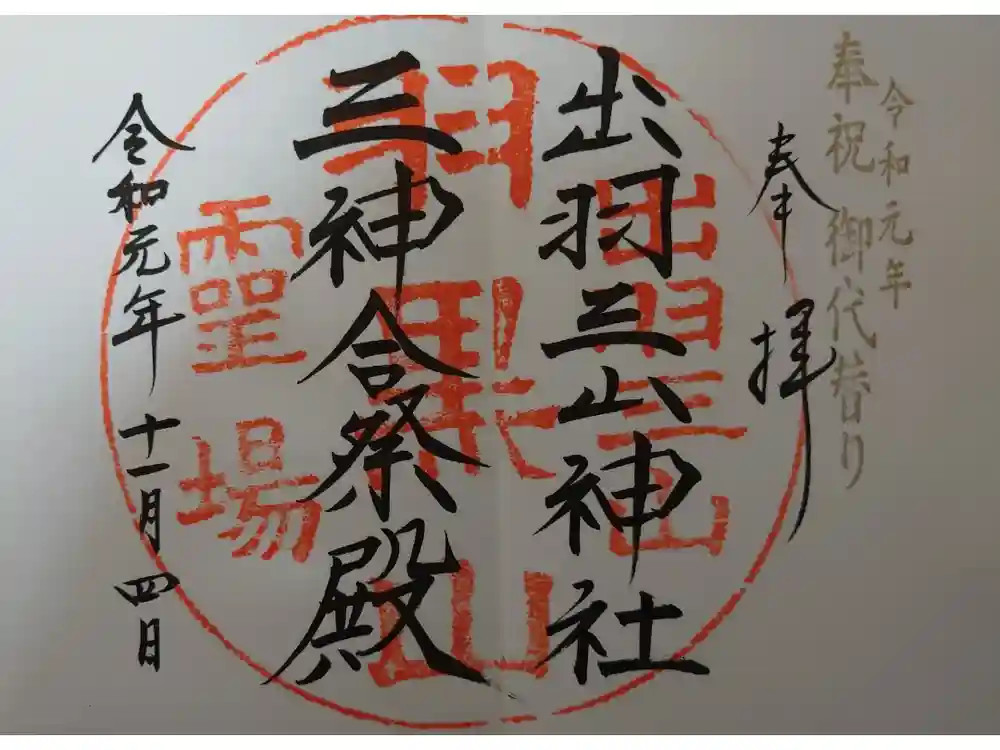 令和元年
奉祝 御代替り
奉拝
出羽三山神社
三神合祭殿
令和元年 十一月 四日
出羽三山
羽黒山
霊場